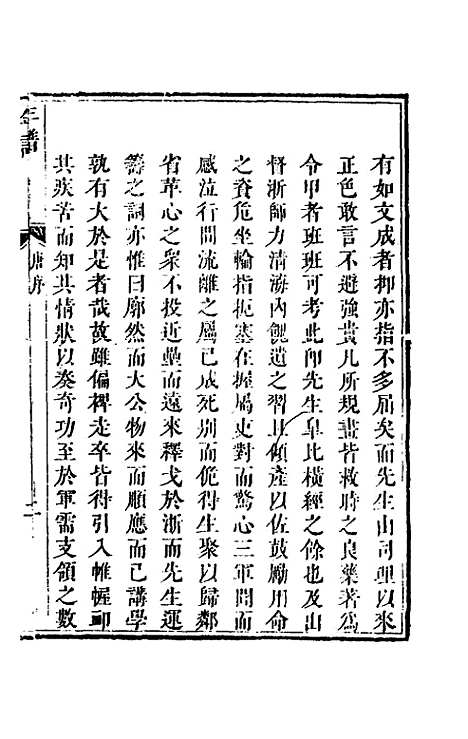 有如文成者抑亦指不多屈矣而先生由司理以來
正色敢言不避強貴凡所規畫皆救時之良藥著爲
令甲者班班可考此卽先生皐比橫經之餘也及出
督浙師力清海內餽遺之習且傾產以佐鼓勵用命
之資危坐輪指扼塞在握局吏對而驚心三軍聞而
感泣行間流離之屬已成死別而俛得生聚以歸鄰
省革心之衆不投近壘而遠來釋戈於浙而先生運
籌之詞亦惟曰廓然而大公物來而順應而已講學
孰有大於是者哉故雖偏裨走卒皆得引入帷幄卽
其疾苦而知其情狀以奏奇功至於軍需支領之數
年譜
唐序
二